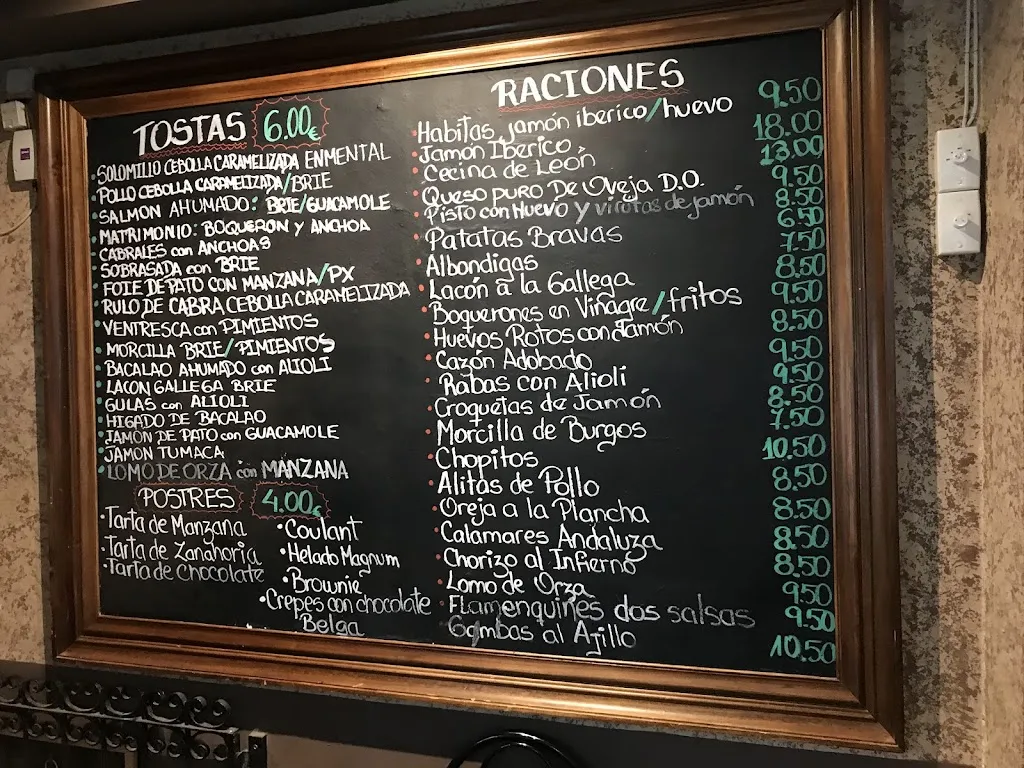 TOSTAS 6.00€
SOLOMILLO CEBOLLA CARAMELIZADA ENMENTAL
POLLO CEBOLLA CARAMELIZADA/BRIE
SALMON AHUMADO: BRIE/GUACAMOLE
MATRIMONIO: BOQUERON Y ANCHOA
CABRALES con ANCHOAS
SOBRASADA con BRIE
FOIE DE PATO CON MANZANA/PX
RULO DE CABRA CEBOLLA CARAMELIZADA
VENTRESCA con PIMIENTOS
MORCILLA BRIE/PIMIENTOS
BACALAO AHUMADO con ALIOLI
LACON GALLEGA BRIE
GULAS con ALIOLI
HIGADO DE BACALAO
JAMON DE PATO con GUACAMOLE
JAMON TUMACA
LOMO DE ORZA con MANZANA
POSTRES 4.00€
Tarta de Manzana
Tarta de Zanahoria
Tarta de Chocolate
Coulant
Helado Magnum
Brownie
Crepes con chocolate
Belga
RACIONES
Habitas jamón iberico/huevo 9.50
Jamón Iberico 18.00
Cecina de León 13.00
Queso puro De Oveja D.O. 9.50
Pisto con Huevo y virutas de jamón 8.50
Patatas Bravas 6.50
Albondigas 7.50
Lacón a la Gallega 8.50
Boquerones en Vinagre/fritos 9.50
Huevos Rotos con Jamón 8.50
Cazón Adobado 9.50
Rabas con Alioli 9.50
Croquetas de Jamón 8.50
Morcilla de Burgos 7.50
Chopitos 10.50
Alitas de Pollo 8.50
Oreja a la Plancha 8.50
Calamares Andaluza 8.50
Chorizo al Infierno 8.50
Lomo de Orza 9.50
Flamenquines dos salsas 9.50
Gambas al Ajillo 10.50